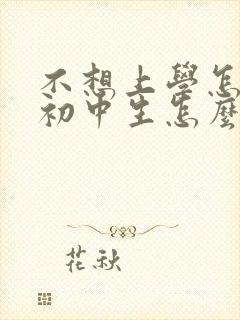 不想上學怎
初中生怎麼
花秋